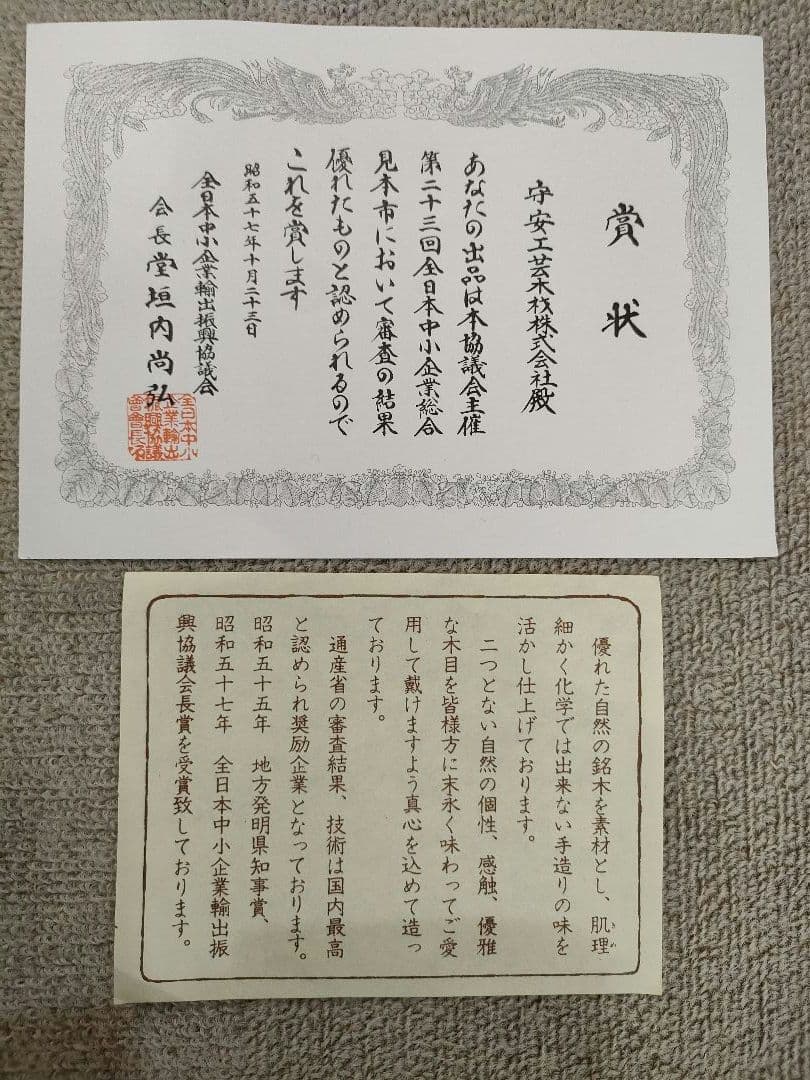 賞状
守安工芸木材株式会社殿
あなたの出品は本協議会主催
第二十三回全日本中小企業総合
見本市において審査の結果
優れたものと認められるので
これを賞します
昭和五十七年十月二十三日
全日本中小企業輸出振興協議会
会長堂垣内尚弘
全日本中小
企業輸出
振興協議
會會長之
優れた自然の銘木を素材とし、肌理
きめ
細かく化学では出来ない手造りの味を
活かし仕上げております。
二つとない自然の個性、感触、優雅
な木目を皆様方に末永く味わってご愛
用して戴けますよう真心を込めて造っ
ております。
通産省の審査結果、技術は国内最高
と認められ奨励企業となっております。
昭和五十五年 地方発明県知事賞、
昭和五十七年 全日本中小企業輸出振
興協議会長賞を受賞致しております。